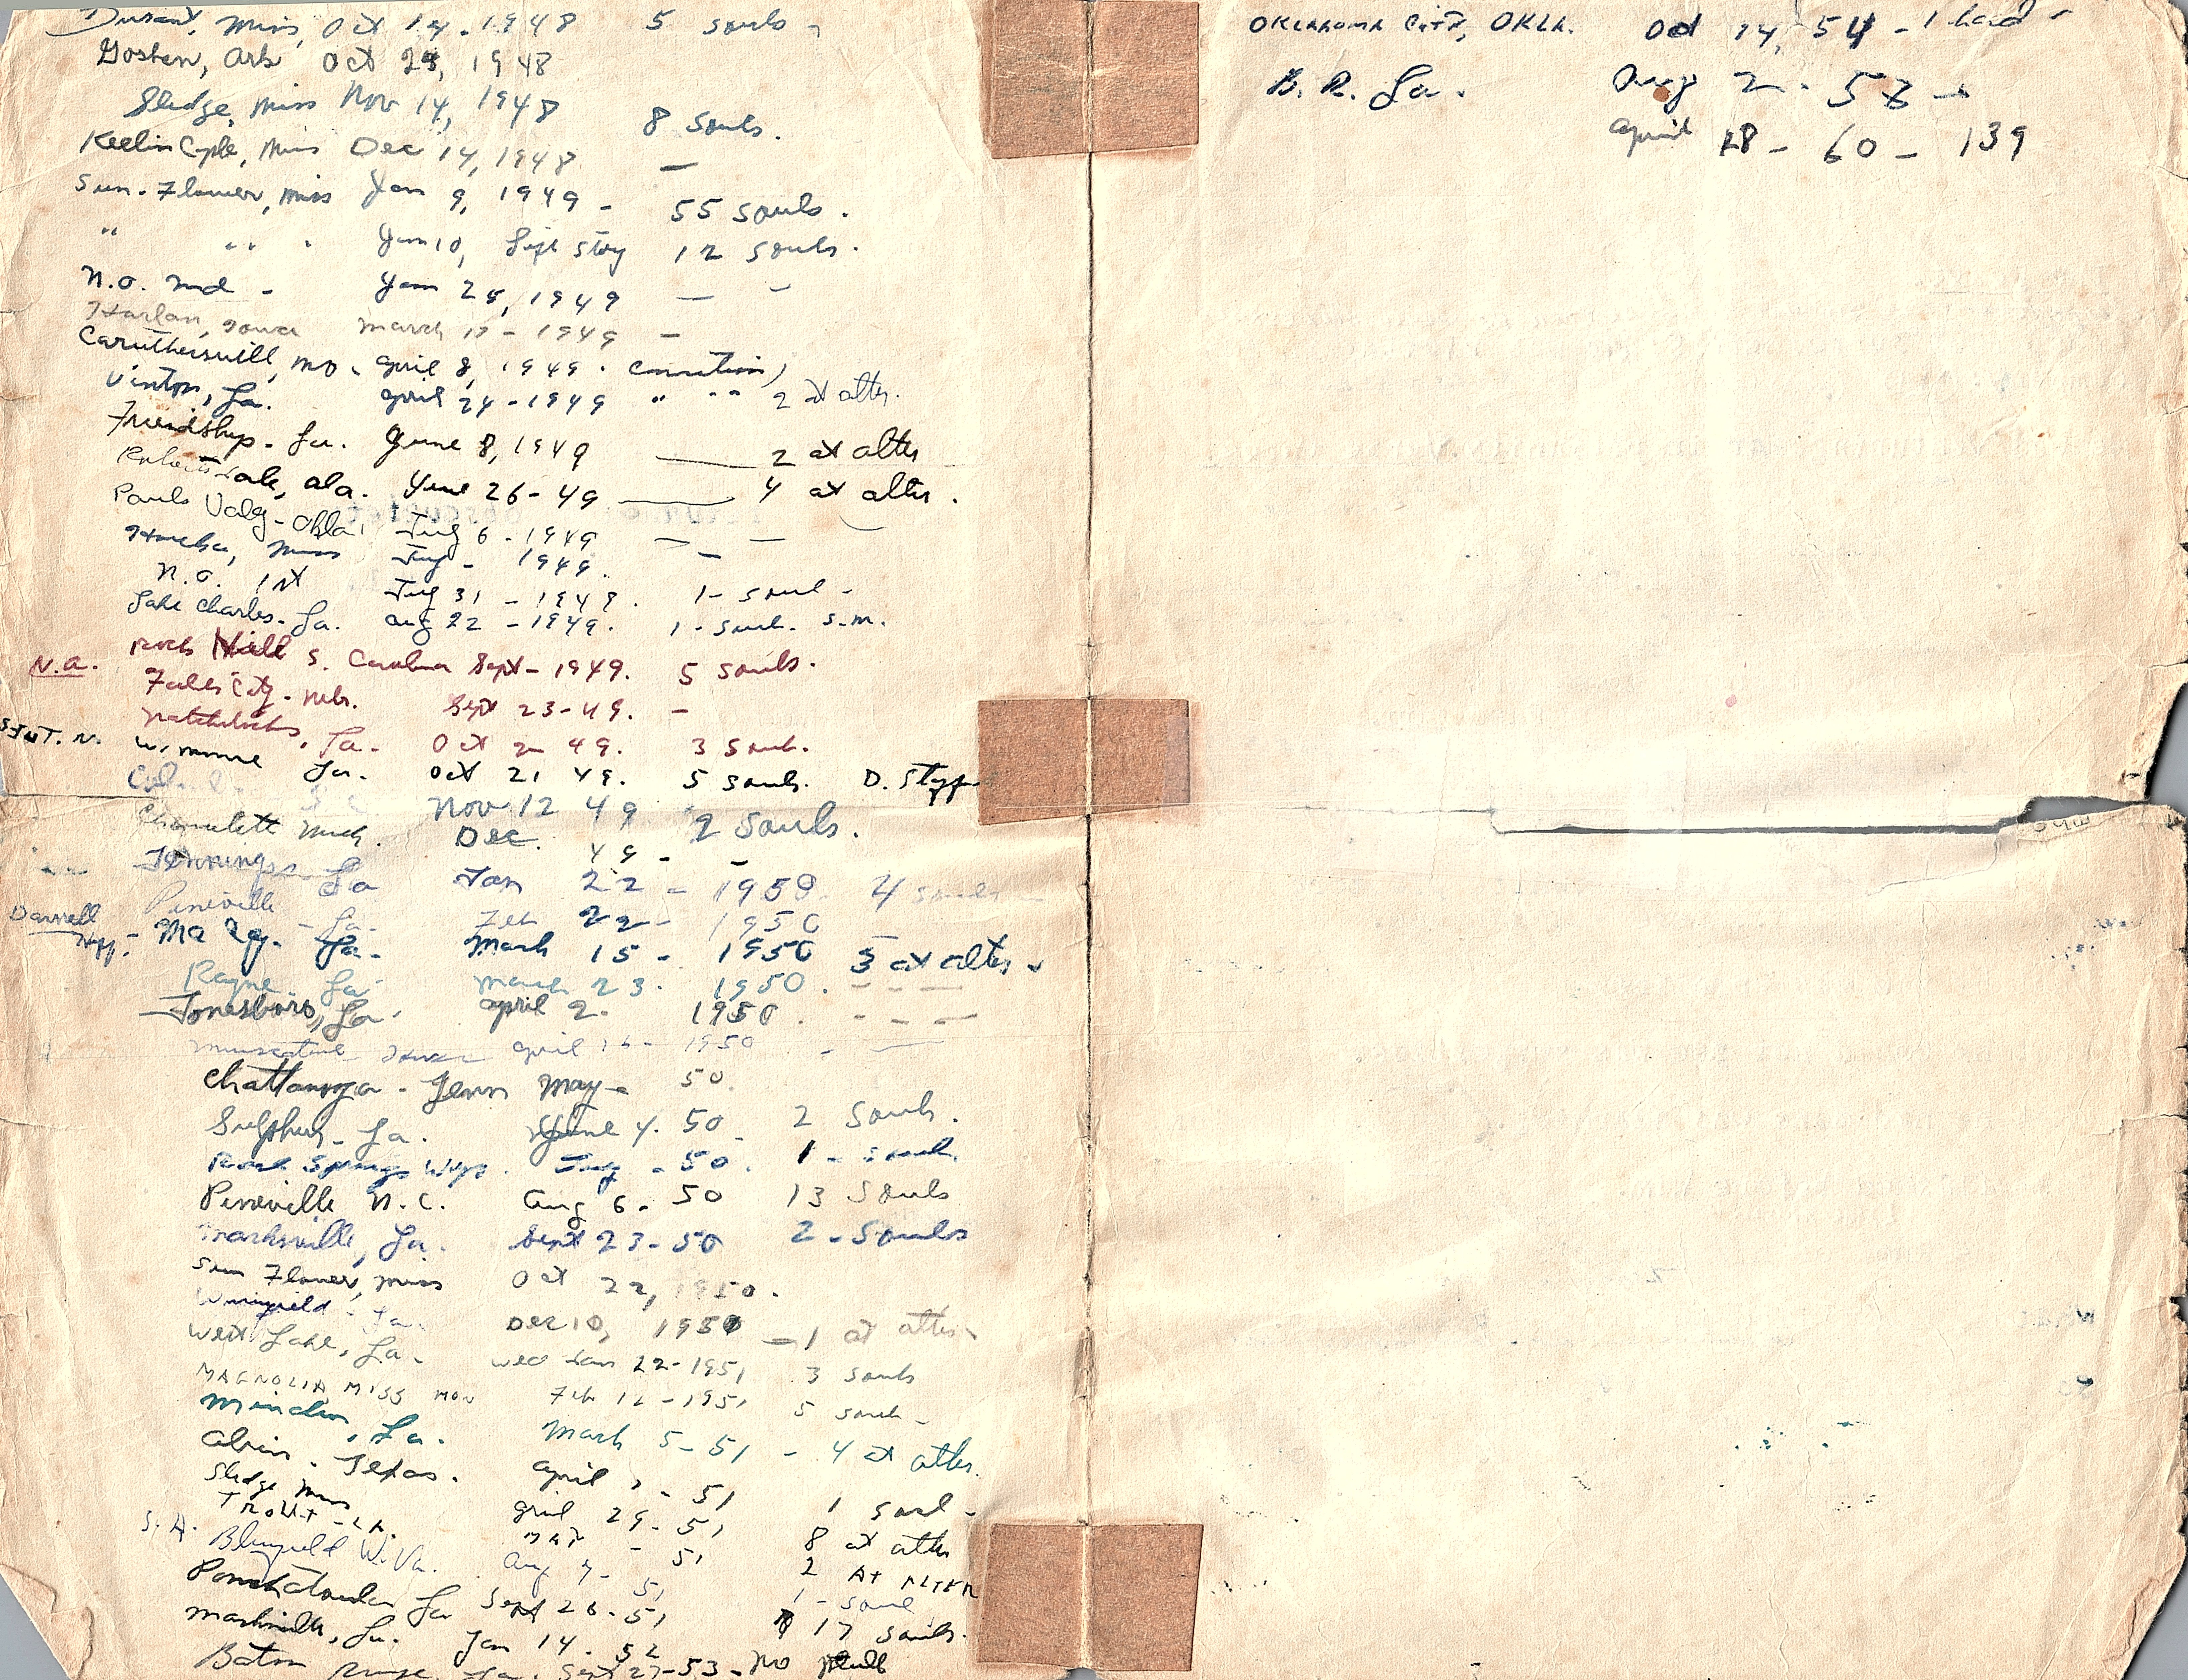 Durant, Miss, Oct 14. 1948 5 souls -
Goshen, Ark Oct 24, 1948
Sledge, Miss Nov 14, 1948 8 souls.
Miss Dec 14, 1948 —
Sun-Flower, Miss Jan 9, 1949 - 55 souls.
" " " Jan 10, Life Story 12 souls.
N.O. Jan 24, 1949 — -
Harlan, Iowa March 1949 -
Caruthersvill, Mo. April 8, 1949.
Vinton, La. April 24-1949 " " 2 at alter.
Friendship - La. June 8, 1949 — 2 at alter
Robertsdale, Ala. June 26-49 — 4 at alter.
Pauls Valy - Okla, July 6 - 1949 — —
Miss July - 1949. -
N.O. 1st July 31 - 1949. 1- soul -
Lake Charles. La. Aug 22 - 1949. 1 - soul. S.M.
N.A. Rock Hill S. Carolina Sept - 1949. 5 souls.
Falls City - Nebr. Sept 23-49. -
Natchitoches, La. Oct 2 49. 3 soul.
Winnie La. Oct 21 49. 5 souls. D.
Nov 12 49 2 souls.
Mich. Dec. 49 - -
Jennings La Jan 22 - 1950. 4 souls
Pineville - La. Feb 22 - 1950
Darrell Ma La. March 15 - 1950 3 at alter
Rayne La March 23. 1950. - - -
Jonesboro, La. April 2. 1950. - - -
Muscatine Iowa April 1950 - —
Chattanooga - Tenn May - 50.
Sulphur - La. June 4. 50 - 2 Souls.
Rock Springs Wyo. July - 50. 1 - soul.
Pineville N.C. Aug 6 - 50 13 Souls
Marksville, La. Sept 23-50 2 - Souls
Sun Flower, Miss Oct 22, 1950.
Winnfield - La. Dec 10, 1950 - 1 at alter
West Lake, La. Wed Jan 22-1951 3 souls
MAGNOLIA MISS MON Feb 12-1951 5 souls -
Minden, La. March 5-51 - 4 at alter.
Alvin - Texas. April - 51 1 soul -
Sledge Miss April 29-51 8 at alter
TROUT - LA. MAY - 51 2 At ALTER
S.A. Bluefield W.Va. Aug 7 - 51 1 - soul
Ponchatoula La Sept 26-51 17 souls.
Marksville, La. Jan 14. 52
Baton Rouge, La. Sept 27-53 - No
OKLAHOMA CITY, OKLA. Oct 14, 54 - 1 had -
B. R. La. Aug 2. 58 -
April 18 - 60 - 139